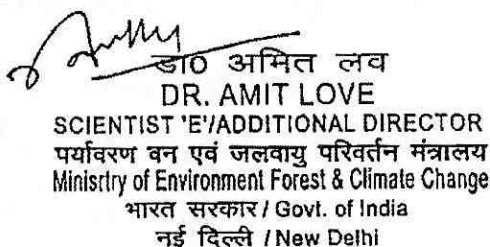 डा० अमित लव
DR. AMIT LOVE
SCIENTIST 'E'/ADDITIONAL DIRECTOR
पर्यावरण वन एवं जलवायु परिवर्तन मंत्रालय
Minisrtry of Environment Forest & Climate Change
भारत सरकार / Govt. of India
नई दिल्ली / New Delhi